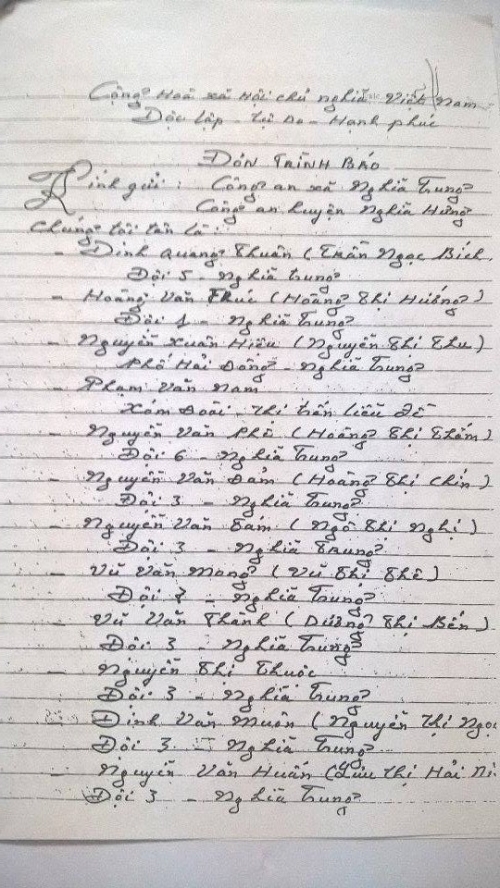 Cộng Hoà xã Hội chủ nghĩa Việt Nam
Độc lập - Tự Do - Hạnh phúc
ĐƠN TRÌNH BÁO
Kính gửi : Công an xã Nghĩa Trung
Công an huyện Nghĩa Hưng
Chúng tôi tên là :
- Đinh Quang Thuân ( Trần Ngọc Bích
Đội 5 - Nghĩa Trung
- Hoàng Văn Thúc ( Hoàng Thị Hướng )
Đội 1 - Nghĩa Trung
- Nguyễn Xuân Hiệu ( Nguyễn Thị Thu )
Phố Hải Đông - Nghĩa Trung
- Phạm Văn Nam
Xóm Đoài - Thị trấn Liễu Đề
- Nguyễn Văn Phê ( Hoàng Thị Thắm )
Đội 6 - Nghĩa Trung
- Nguyễn Văn Đảm ( Hoàng Thị Chín )
Đội 3 - Nghĩa Trung
- Nguyễn Văn Tam ( Ngô Thị Nghị )
Đội 3 - Nghĩa Trung
- Vũ Văn Mong ( Vũ Thị Thê )
Đội 2 - Nghĩa Trung
- Vũ Văn Thành ( Dương Thị Bến )
Đội 3 - Nghĩa Trung
- Nguyễn Thị Thuộc
Đội 3 - Nghĩa Trung
- Đinh Văn Muôn ( Nguyễn Thị Ngọc
Đội 3 - Nghĩa Trung
- Nguyễn Văn Huấn ( Lưu Thị Hải Ni
Đội 3 - Nghĩa Trung